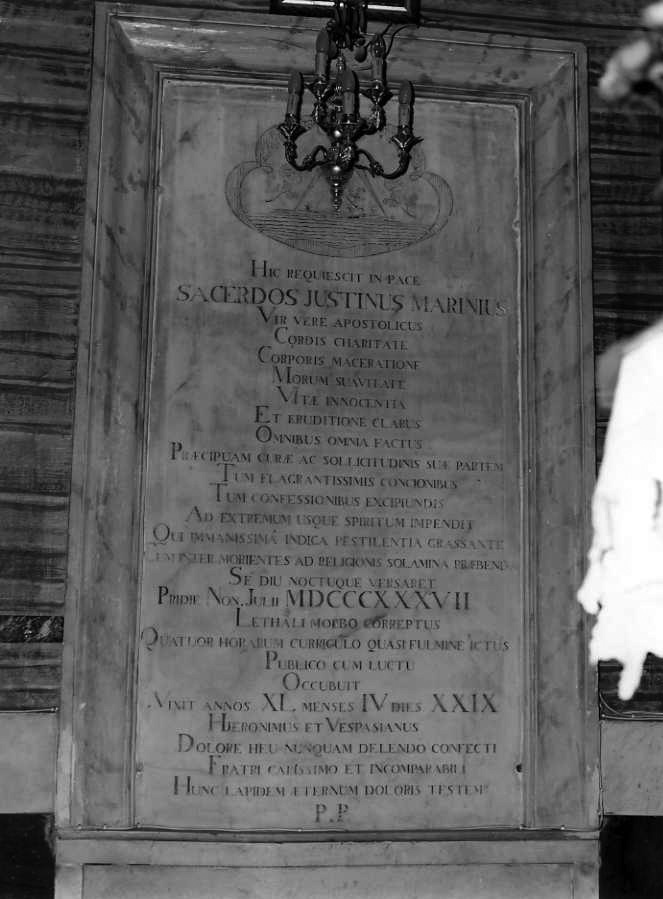 HIC REQUIESCIT IN PACE
SACERDOS JUSTINUS MARINIUS
VIR VERE APOSTOLICUS
CORDIS CHARITATE
CORPORIS MACERATIONE
MORUM SUAVITATE
VITÆ INNOCENTIA
ET ERUDITIONE CLARUS
OMNIBUS OMNIA FACTUS
PRÆCIPUAM CURÆ AC SOLLICITUDINIS SUÆ PARTEM
TUM FLAGRANTISSIMIS CONCIONIBUS
TUM CONFESSIONIBUS EXCIPIUNDIS
AD EXTREMUM USQUE SPIRITUM IMPENDIT
QUI IMMANISSIMÂ INDICA PESTILENTIA GRASSANTE
CUM INTER MORIENTES AD RELIGIONIS SOLAMINA PRÆBENDA
SE DIU NOCTUQUE VERSARET
PRIDIE NON. JULII MDCCCXXXVII
LETHALI MORBO CORREPTUS
QUATUOR HORARUM CURRICULO QUASI FULMINE ICTUS
PUBLICO CUM LUCTU
OCCUBUIT
VIXIT ANNOS XL, MENSES IV DIES XXIX
HIERONIMUS ET VESPASIANUS
DOLORE HEU NUNQUAM DELENDO CONFECTI
FRATRI CARISSIMO ET INCOMPARABILI
HUNC LAPIDEM ÆTERNUM DOLORIS TESTEM
P.P.